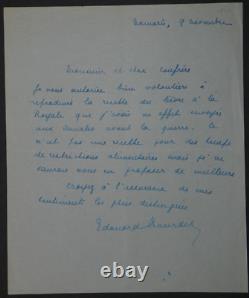 Monsieur et cher confrère
Je vous autorise bien volontiers à
reproduire la recette du lièvre à la
Royale que j'avais en effet envoyée
aux Annales avant la guerre. Ce
n'est pas une recette pour des temps
de restrictions alimentaires mais je ne
saurais vous en proposer de meilleure
Croyez à l'assurance de mes
sentiments les plus distingués
Edouard
© ebay